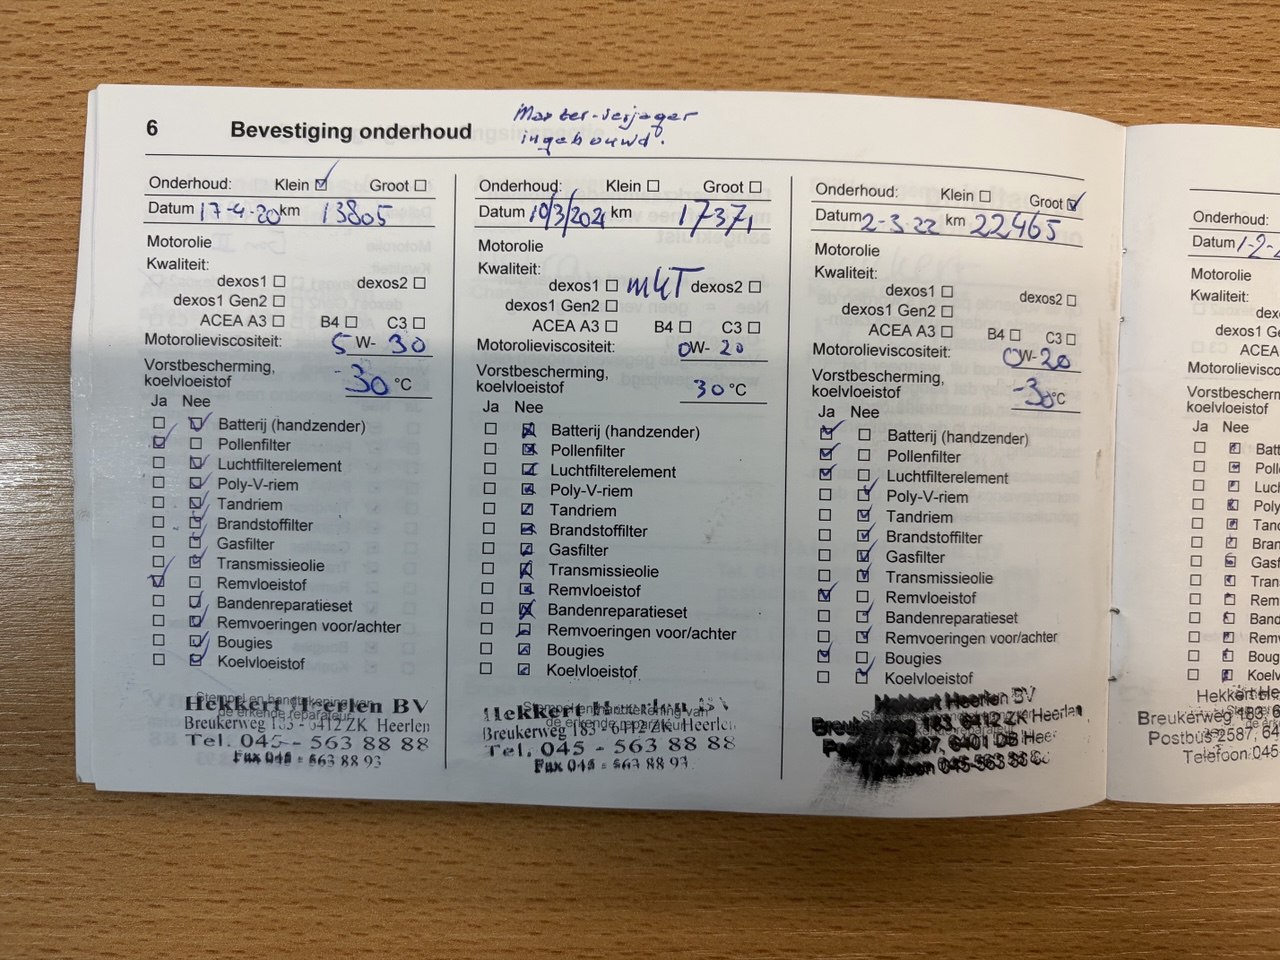 6 Bevestiging onderhoud
Marter-verjager
ingebouwd.
Onderhoud: Klein Groot
Datum 17-4-20 km 13805
Motorolie
Kwaliteit:
dexos1 dexos2
dexos1 Gen2
ACEA A3 B4 C3
Motorolieviscositeit: 5 W- 30
Vorstbescherming,
koelvloeistof -30 °C
Ja Nee
Batterij (handzender)
Pollenfilter
Luchtfilterelement
Poly-V-riem
Tandriem
Brandstoffilter
Gasfilter
Transmissieolie
Remvloeistof
Bandenreparatieset
Remvoeringen voor/achter
Bougies
Koelvloeistof
Stempel en handtekening van
de erkende reparateur
Hekkert Heerlen BV
Breukerweg 183 - 6412 ZK Heerlen
Tel. 045 - 563 88 88
Fax 045 - 563 88 93
Onderhoud: Klein Groot
Datum 10/3/2021 km 17371
Motorolie
Kwaliteit:
dexos1 MKT dexos2
dexos1 Gen2
ACEA A3 B4 C3
Motorolieviscositeit: 0W- 20
Vorstbescherming,
koelvloeistof 30 °C
Ja Nee
Batterij (handzender)
Pollenfilter
Luchtfilterelement
Poly-V-riem
Tandriem
Brandstoffilter
Gasfilter
Transmissieolie
Remvloeistof
Bandenreparatieset
Remvoeringen voor/achter
Bougies
Koelvloeistof
Stempel en handtekening van
de erkende reparateur
Hekkert Heerlen BV
Breukerweg 183 - 6412 ZK Heerlen
Tel. 045 - 563 88 88
Fax 045 - 563 88 93
Onderhoud: Klein Groot
Datum 2-3-22 km 22465
Motorolie
Kwaliteit:
dexos1 dexos2
dexos1 Gen2
ACEA A3 B4 C3
Motorolieviscositeit: 0W-20
Vorstbescherming,
koelvloeistof -30 °C
Ja Nee
Batterij (handzender)
Pollenfilter
Luchtfilterelement
Poly-V-riem
Tandriem
Brandstoffilter
Gasfilter
Transmissieolie
Remvloeistof
Bandenreparatieset
Remvoeringen voor/achter
Bougies
Koelvloeistof
Hekkert Heerlen BV
Breukerweg 183, 6412 ZK Heerlen
Postbus 2587, 6401 DB Heer
Telefoon 045-563 88
Onderhoud:
Datum 1-2-2
Motorolie
Kwaliteit:
dexos
dexos1 Ge
ACEA
Motorolieviscos
Vorstbescherm
koelvloeistof
Ja Nee
Batt
Polle
Luch
Poly
Tand
Bran
Gasf
Tran
Rem
Band
Rem
Boug
Koel
Hekkert He
Breukerweg 183, 6
Postbus 2587, 64
Telefoon 045